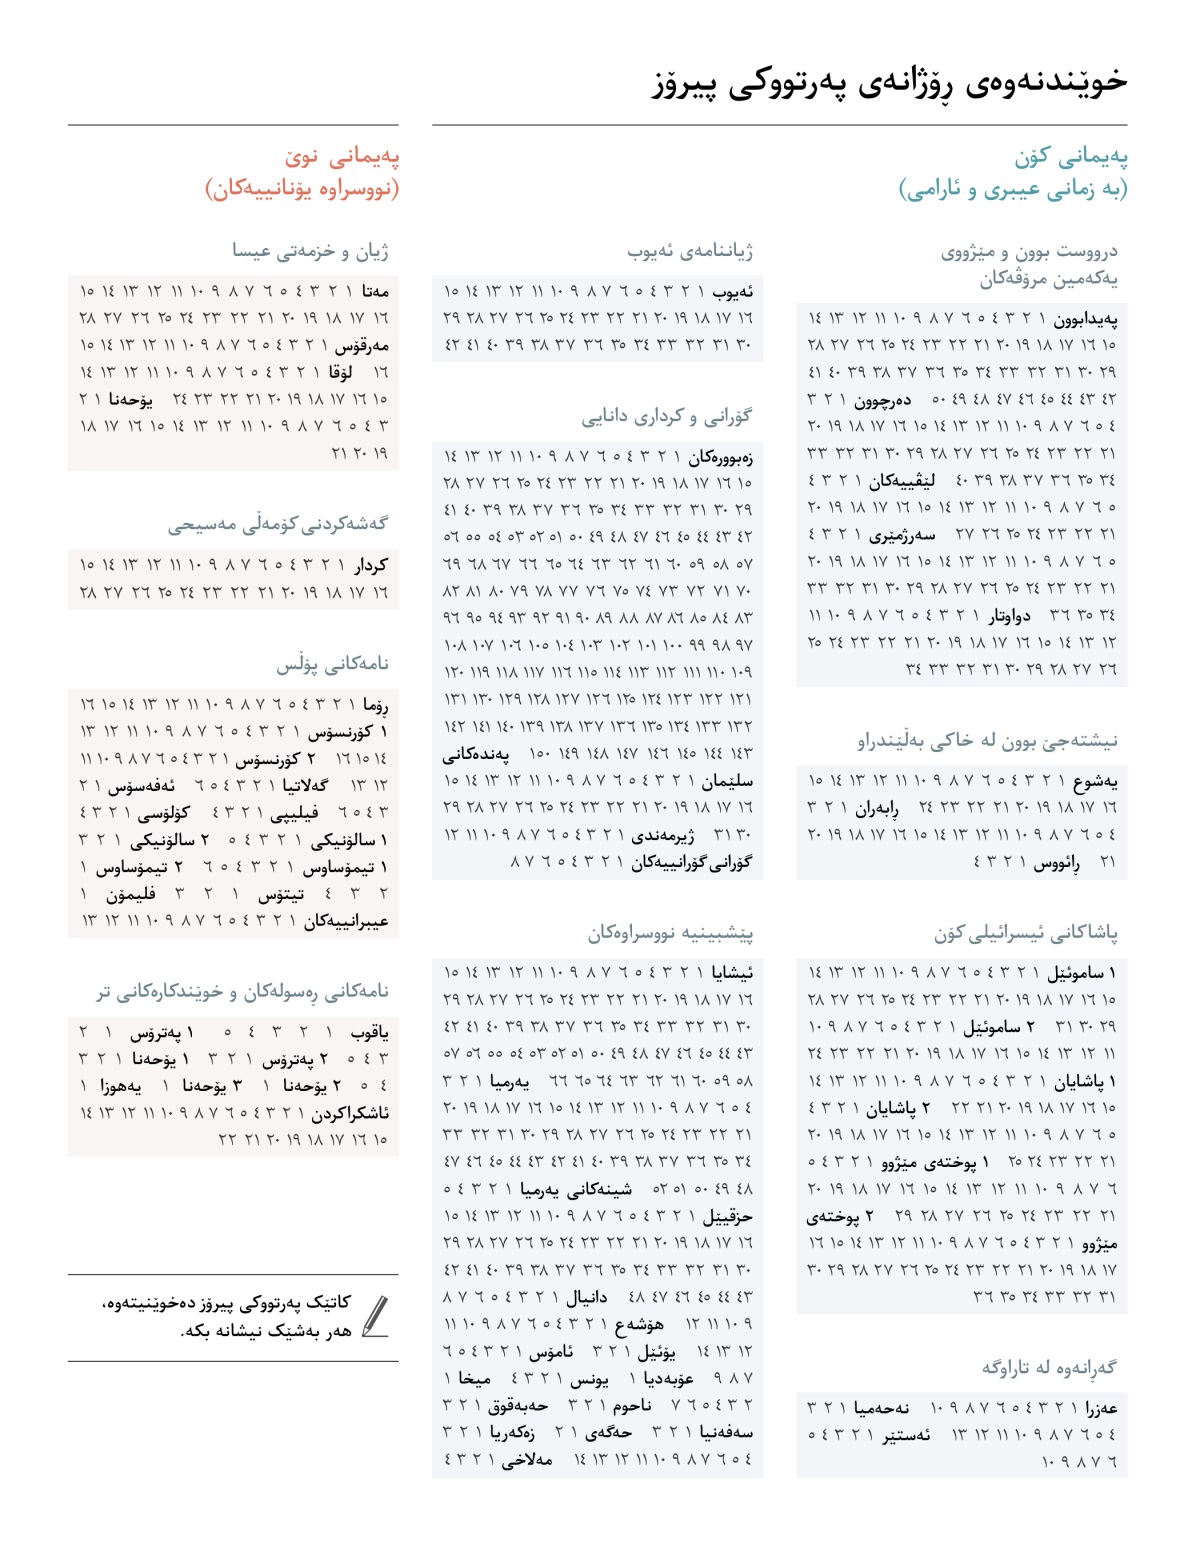 خوێندنەوەی ڕۆژانەی پەرتووکی پیرۆز
پەیمانی کۆن
(بە زمانی عیبری و ئارامی)
درووست بوون و مێژووی
یەکەمین مرۆڤەکان
پەیدابوون ١ ٢ ٣ ٤ ٥ ٦ ٧ ٨ ٩ ١٠ ١١ ١٢ ١٣ ١٤
١٥ ١٦ ١٧ ١٨ ١٩ ٢٠ ٢١ ٢٢ ٢٣ ٢٤ ٢٥ ٢٦ ٢٧ ٢٨
٢٩ ٣٠ ٣١ ٣٢ ٣٣ ٣٤ ٣٥ ٣٦ ٣٧ ٣٨ ٣٩ ٤٠ ٤١
٤٢ ٤٣ ٤٤ ٤٥ ٤٦ ٤٧ ٤٨ ٤٩ ٥٠ دەرچوون ١ ٢ ٣
٤ ٥ ٦ ٧ ٨ ٩ ١٠ ١١ ١٢ ١٣ ١٤ ١٥ ١٦ ١٧ ١٨ ١٩ ٢٠
٢١ ٢٢ ٢٣ ٢٤ ٢٥ ٢٦ ٢٧ ٢٨ ٢٩ ٣٠ ٣١ ٣٢ ٣٣
٣٤ ٣٥ ٣٦ ٣٧ ٣٨ ٣٩ ٤٠ لێڤییەکان ١ ٢ ٣ ٤
٥ ٦ ٧ ٨ ٩ ١٠ ١١ ١٢ ١٣ ١٤ ١٥ ١٦ ١٧ ١٨ ١٩ ٢٠
٢١ ٢٢ ٢٣ ٢٤ ٢٥ ٢٦ ٢٧ سەرژمێری ١ ٢ ٣ ٤
٥ ٦ ٧ ٨ ٩ ١٠ ١١ ١٢ ١٣ ١٤ ١٥ ١٦ ١٧ ١٨ ١٩ ٢٠
٢١ ٢٢ ٢٣ ٢٤ ٢٥ ٢٦ ٢٧ ٢٨ ٢٩ ٣٠ ٣١ ٣٢ ٣٣
٣٤ ٣٥ ٣٦ دواوتار ١ ٢ ٣ ٤ ٥ ٦ ٧ ٨ ٩ ١٠ ١١
١٢ ١٣ ١٤ ١٥ ١٦ ١٧ ١٨ ١٩ ٢٠ ٢١ ٢٢ ٢٣ ٢٤ ٢٥
٢٦ ٢٧ ٢٨ ٢٩ ٣٠ ٣١ ٣٢ ٣٣ ٣٤
نیشتەجێ بوون لە خاکی بەڵێندراو
یەشوع ١ ٢ ٣ ٤ ٥ ٦ ٧ ٨ ٩ ١٠ ١١ ١٢ ١٣ ١٤ ١٥
١٦ ١٧ ١٨ ١٩ ٢٠ ٢١ ٢٢ ٢٣ ٢٤ ڕابەران ١ ٢ ٣
٤ ٥ ٦ ٧ ٨ ٩ ١٠ ١١ ١٢ ١٣ ١٤ ١٥ ١٦ ١٧ ١٨ ١٩ ٢٠
٢١ ڕائووس ١ ٢ ٣ ٤
پاشاکانی ئیسرائیلی کۆن
١ ساموئێل ١ ٢ ٣ ٤ ٥ ٦ ٧ ٨ ٩ ١٠ ١١ ١٢ ١٣ ١٤
١٥ ١٦ ١٧ ١٨ ١٩ ٢٠ ٢١ ٢٢ ٢٣ ٢٤ ٢٥ ٢٦ ٢٧ ٢٨
٢٩ ٣٠ ٣١ ٢ ساموئێل ١ ٢ ٣ ٤ ٥ ٦ ٧ ٨ ٩ ١٠
١١ ١٢ ١٣ ١٤ ١٥ ١٦ ١٧ ١٨ ١٩ ٢٠ ٢١ ٢٢ ٢٣ ٢٤
١ پاشایان ١ ٢ ٣ ٤ ٥ ٦ ٧ ٨ ٩ ١٠ ١١ ١٢ ١٣ ١٤
١٥ ١٦ ١٧ ١٨ ١٩ ٢٠ ٢١ ٢٢ ٢ پاشایان ١ ٢ ٣ ٤
٥ ٦ ٧ ٨ ٩ ١٠ ١١ ١٢ ١٣ ١٤ ١٥ ١٦ ١٧ ١٨ ١٩ ٢٠
٢١ ٢٢ ٢٣ ٢٤ ٢٥ ١ پوختەی مێژوو ١ ٢ ٣ ٤ ٥
٦ ٧ ٨ ٩ ١٠ ١١ ١٢ ١٣ ١٤ ١٥ ١٦ ١٧ ١٨ ١٩ ٢٠
٢١ ٢٢ ٢٣ ٢٤ ٢٥ ٢٦ ٢٧ ٢٨ ٢٩ ٢ پوختەی
مێژوو ١ ٢ ٣ ٤ ٥ ٦ ٧ ٨ ٩ ١٠ ١١ ١٢ ١٣ ١٤ ١٥ ١٦
١٧ ١٨ ١٩ ٢٠ ٢١ ٢٢ ٢٣ ٢٤ ٢٥ ٢٦ ٢٧ ٢٨ ٢٩ ٣٠
٣١ ٣٢ ٣٣ ٣٤ ٣٥ ٣٦
گەڕانەوە لە تاراوگە
عەزرا ١ ٢ ٣ ٤ ٥ ٦ ٧ ٨ ٩ ١٠ نەحەمیا ١ ٢ ٣
٤ ٥ ٦ ٧ ٨ ٩ ١٠ ١١ ١٢ ١٣ ئەستێر ١ ٢ ٣ ٤ ٥
٦ ٧ ٨ ٩ ١٠
ژیاننامەی ئەیوب
ئەیوب ١ ٢ ٣ ٤ ٥ ٦ ٧ ٨ ٩ ١٠ ١١ ١٢ ١٣ ١٤ ١٥
١٦ ١٧ ١٨ ١٩ ٢٠ ٢١ ٢٢ ٢٣ ٢٤ ٢٥ ٢٦ ٢٧ ٢٨ ٢٩
٣٠ ٣١ ٣٢ ٣٣ ٣٤ ٣٥ ٣٦ ٣٧ ٣٨ ٣٩ ٤٠ ٤١ ٤٢
گۆرانی و کرداری دانایی
زەبوورەکان ١ ٢ ٣ ٤ ٥ ٦ ٧ ٨ ٩ ١٠ ١١ ١٢ ١٣ ١٤
١٥ ١٦ ١٧ ١٨ ١٩ ٢٠ ٢١ ٢٢ ٢٣ ٢٤ ٢٥ ٢٦ ٢٧ ٢٨
٢٩ ٣٠ ٣١ ٣٢ ٣٣ ٣٤ ٣٥ ٣٦ ٣٧ ٣٨ ٣٩ ٤٠ ٤١
٤٢ ٤٣ ٤٤ ٤٥ ٤٦ ٤٧ ٤٨ ٤٩ ٥٠ ٥١ ٥٢ ٥٣ ٥٤ ٥٥ ٥٦
٥٧ ٥٨ ٥٩ ٦٠ ٦١ ٦٢ ٦٣ ٦٤ ٦٥ ٦٦ ٦٧ ٦٨ ٦٩
٧٠ ٧١ ٧٢ ٧٣ ٧٤ ٧٥ ٧٦ ٧٧ ٧٨ ٧٩ ٨٠ ٨١ ٨٢
٨٣ ٨٤ ٨٥ ٨٦ ٨٧ ٨٨ ٨٩ ٩٠ ٩١ ٩٢ ٩٣ ٩٤ ٩٥ ٩٦
٩٧ ٩٨ ٩٩ ١٠٠ ١٠١ ١٠٢ ١٠٣ ١٠٤ ١٠٥ ١٠٦ ١٠٧ ١٠٨
١٠٩ ١١٠ ١١١ ١١٢ ١١٣ ١١٤ ١١٥ ١١٦ ١١٧ ١١٨ ١١٩ ١٢٠
١٢١ ١٢٢ ١٢٣ ١٢٤ ١٢٥ ١٢٦ ١٢٧ ١٢٨ ١٢٩ ١٣٠ ١٣١
١٣٢ ١٣٣ ١٣٤ ١٣٥ ١٣٦ ١٣٧ ١٣٨ ١٣٩ ١٤٠ ١٤١ ١٤٢
١٤٣ ١٤٤ ١٤٥ ١٤٦ ١٤٧ ١٤٨ ١٤٩ ١٥٠ پەندەکانی
سلێمان ١ ٢ ٣ ٤ ٥ ٦ ٧ ٨ ٩ ١٠ ١١ ١٢ ١٣ ١٤ ١٥
١٦ ١٧ ١٨ ١٩ ٢٠ ٢١ ٢٢ ٢٣ ٢٤ ٢٥ ٢٦ ٢٧ ٢٨ ٢٩
٣٠ ٣١ ژیرمەندی ١ ٢ ٣ ٤ ٥ ٦ ٧ ٨ ٩ ١٠ ١١ ١٢
گۆرانی گۆرانییەکان ١ ٢ ٣ ٤ ٥ ٦ ٧ ٨
پێشبینیە نووسراوەکان
ئیشایا ١ ٢ ٣ ٤ ٥ ٦ ٧ ٨ ٩ ١٠ ١١ ١٢ ١٣ ١٤ ١٥
١٦ ١٧ ١٨ ١٩ ٢٠ ٢١ ٢٢ ٢٣ ٢٤ ٢٥ ٢٦ ٢٧ ٢٨ ٢٩
٣٠ ٣١ ٣٢ ٣٣ ٣٤ ٣٥ ٣٦ ٣٧ ٣٨ ٣٩ ٤٠ ٤١ ٤٢
٤٣ ٤٤ ٤٥ ٤٦ ٤٧ ٤٨ ٤٩ ٥٠ ٥١ ٥٢ ٥٣ ٥٤ ٥٥ ٥٦ ٥٧
٥٨ ٥٩ ٦٠ ٦١ ٦٢ ٦٣ ٦٤ ٦٥ ٦٦ یەرمیا ١ ٢ ٣
٤ ٥ ٦ ٧ ٨ ٩ ١٠ ١١ ١٢ ١٣ ١٤ ١٥ ١٦ ١٧ ١٨ ١٩ ٢٠
٢١ ٢٢ ٢٣ ٢٤ ٢٥ ٢٦ ٢٧ ٢٨ ٢٩ ٣٠ ٣١ ٣٢ ٣٣
٣٤ ٣٥ ٣٦ ٣٧ ٣٨ ٣٩ ٤٠ ٤١ ٤٢ ٤٣ ٤٤ ٤٥ ٤٦ ٤٧
٤٨ ٤٩ ٥٠ ٥١ ٥٢ شینەکانی یەرمیا ١ ٢ ٣ ٤ ٥
حزقیێل ١ ٢ ٣ ٤ ٥ ٦ ٧ ٨ ٩ ١٠ ١١ ١٢ ١٣ ١٤ ١٥
١٦ ١٧ ١٨ ١٩ ٢٠ ٢١ ٢٢ ٢٣ ٢٤ ٢٥ ٢٦ ٢٧ ٢٨ ٢٩
٣٠ ٣١ ٣٢ ٣٣ ٣٤ ٣٥ ٣٦ ٣٧ ٣٨ ٣٩ ٤٠ ٤١ ٤٢
٤٣ ٤٤ ٤٥ ٤٦ ٤٧ ٤٨ دانیال ١ ٢ ٣ ٤ ٥ ٦ ٧ ٨
٩ ١٠ ١١ ١٢ هۆشەع ١ ٢ ٣ ٤ ٥ ٦ ٧ ٨ ٩ ١٠ ١١
١٢ ١٣ ١٤ یۆئێل ١ ٢ ٣ ئامۆس ١ ٢ ٣ ٤ ٥ ٦
٧ ٨ ٩ عۆبەدیا ١ یونس ١ ٢ ٣ ٤ میخا ١
٢ ٣ ٤ ٥ ٦ ٧ ناحوم ١ ٢ ٣ حەبەقوق ١ ٢ ٣
سەفەنیا ١ ٢ ٣ حەگەی ١ ٢ زەکەریا ١ ٢ ٣
٤ ٥ ٦ ٧ ٨ ٩ ١٠ ١١ ١٢ ١٣ ١٤ مەلاخی ١ ٢ ٣ ٤
پەیمانی نوێ
(نووسراوە یۆنانییەکان)
ژیان و خزمەتی عیسا
مەتا ١ ٢ ٣ ٤ ٥ ٦ ٧ ٨ ٩ ١٠ ١١ ١٢ ١٣ ١٤ ١٥
١٦ ١٧ ١٨ ١٩ ٢٠ ٢١ ٢٢ ٢٣ ٢٤ ٢٥ ٢٦ ٢٧ ٢٨
مەرقۆس ١ ٢ ٣ ٤ ٥ ٦ ٧ ٨ ٩ ١٠ ١١ ١٢ ١٣ ١٤ ١٥
١٦ لۆقا ١ ٢ ٣ ٤ ٥ ٦ ٧ ٨ ٩ ١٠ ١١ ١٢ ١٣ ١٤
١٥ ١٦ ١٧ ١٨ ١٩ ٢٠ ٢١ ٢٢ ٢٣ ٢٤ یۆحەنا ١ ٢
٣ ٤ ٥ ٦ ٧ ٨ ٩ ١٠ ١١ ١٢ ١٣ ١٤ ١٥ ١٦ ١٧ ١٨
١٩ ٢٠ ٢١
گەشەکردنی کۆمەڵی مەسیحی
کردار ١ ٢ ٣ ٤ ٥ ٦ ٧ ٨ ٩ ١٠ ١١ ١٢ ١٣ ١٤ ١٥
١٦ ١٧ ١٨ ١٩ ٢٠ ٢١ ٢٢ ٢٣ ٢٤ ٢٥ ٢٦ ٢٧ ٢٨
نامەکانی پۆڵس
ڕۆما ١ ٢ ٣ ٤ ٥ ٦ ٧ ٨ ٩ ١٠ ١١ ١٢ ١٣ ١٤ ١٥ ١٦
١ کۆرنسۆس ١ ٢ ٣ ٤ ٥ ٦ ٧ ٨ ٩ ١٠ ١١ ١٢ ١٣
١٤ ١٥ ١٦ ٢ کۆرنسۆس ١ ٢ ٣ ٤ ٥ ٦ ٧ ٨ ٩ ١٠ ١١
١٢ ١٣ گەلاتیا ١ ٢ ٣ ٤ ٥ ٦ ئەفەسۆس ١ ٢
٣ ٤ ٥ ٦ فیلیپی ١ ٢ ٣ ٤ کۆلۆسی ١ ٢ ٣ ٤
١ سالۆنیکی ١ ٢ ٣ ٤ ٥ ٢ سالۆنیکی ١ ٢ ٣
١ تیمۆساوس ١ ٢ ٣ ٤ ٥ ٦ ٢ تیمۆساوس ١
٢ ٣ ٤ تیتۆس ١ ٢ ٣ فلیمۆن ١
عیبرانییەکان ١ ٢ ٣ ٤ ٥ ٦ ٧ ٨ ٩ ١٠ ١١ ١٢ ١٣
نامەکانی ڕەسولەکان و خوێندکارەکانی تر
یاقوب ١ ٢ ٣ ٤ ٥ ١ پەترۆس ١ ٢
٣ ٤ ٥ ٢ پەترۆس ١ ٢ ٣ ١ یۆحەنا ١ ٢ ٣
٤ ٥ ٢ یۆحەنا ١ ٣ یۆحەنا ١ یەهوزا ١
ئاشکراکردن ١ ٢ ٣ ٤ ٥ ٦ ٧ ٨ ٩ ١٠ ١١ ١٢ ١٣ ١٤
١٥ ١٦ ١٧ ١٨ ١٩ ٢٠ ٢١ ٢٢
کاتێک پەرتووکی پیرۆز دەخوێنیتەوە،
هەر بەشێک نیشانە بکە.